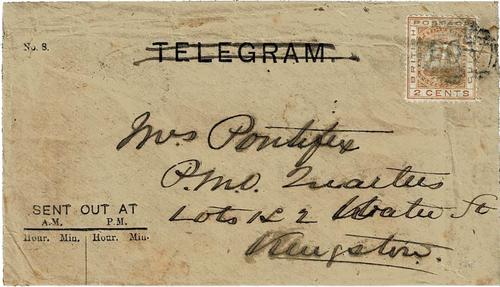 No. 8.
TELEGRAM.
BRITISH POSTAGE GUIANA
2 CENTS
Mrs Pontifex
P.M.O. Quarters
Lots 1 & 2 Water St
Kingston.
SENT OUT AT
A.M. P.M.
Hour. Min. Hour. Min.